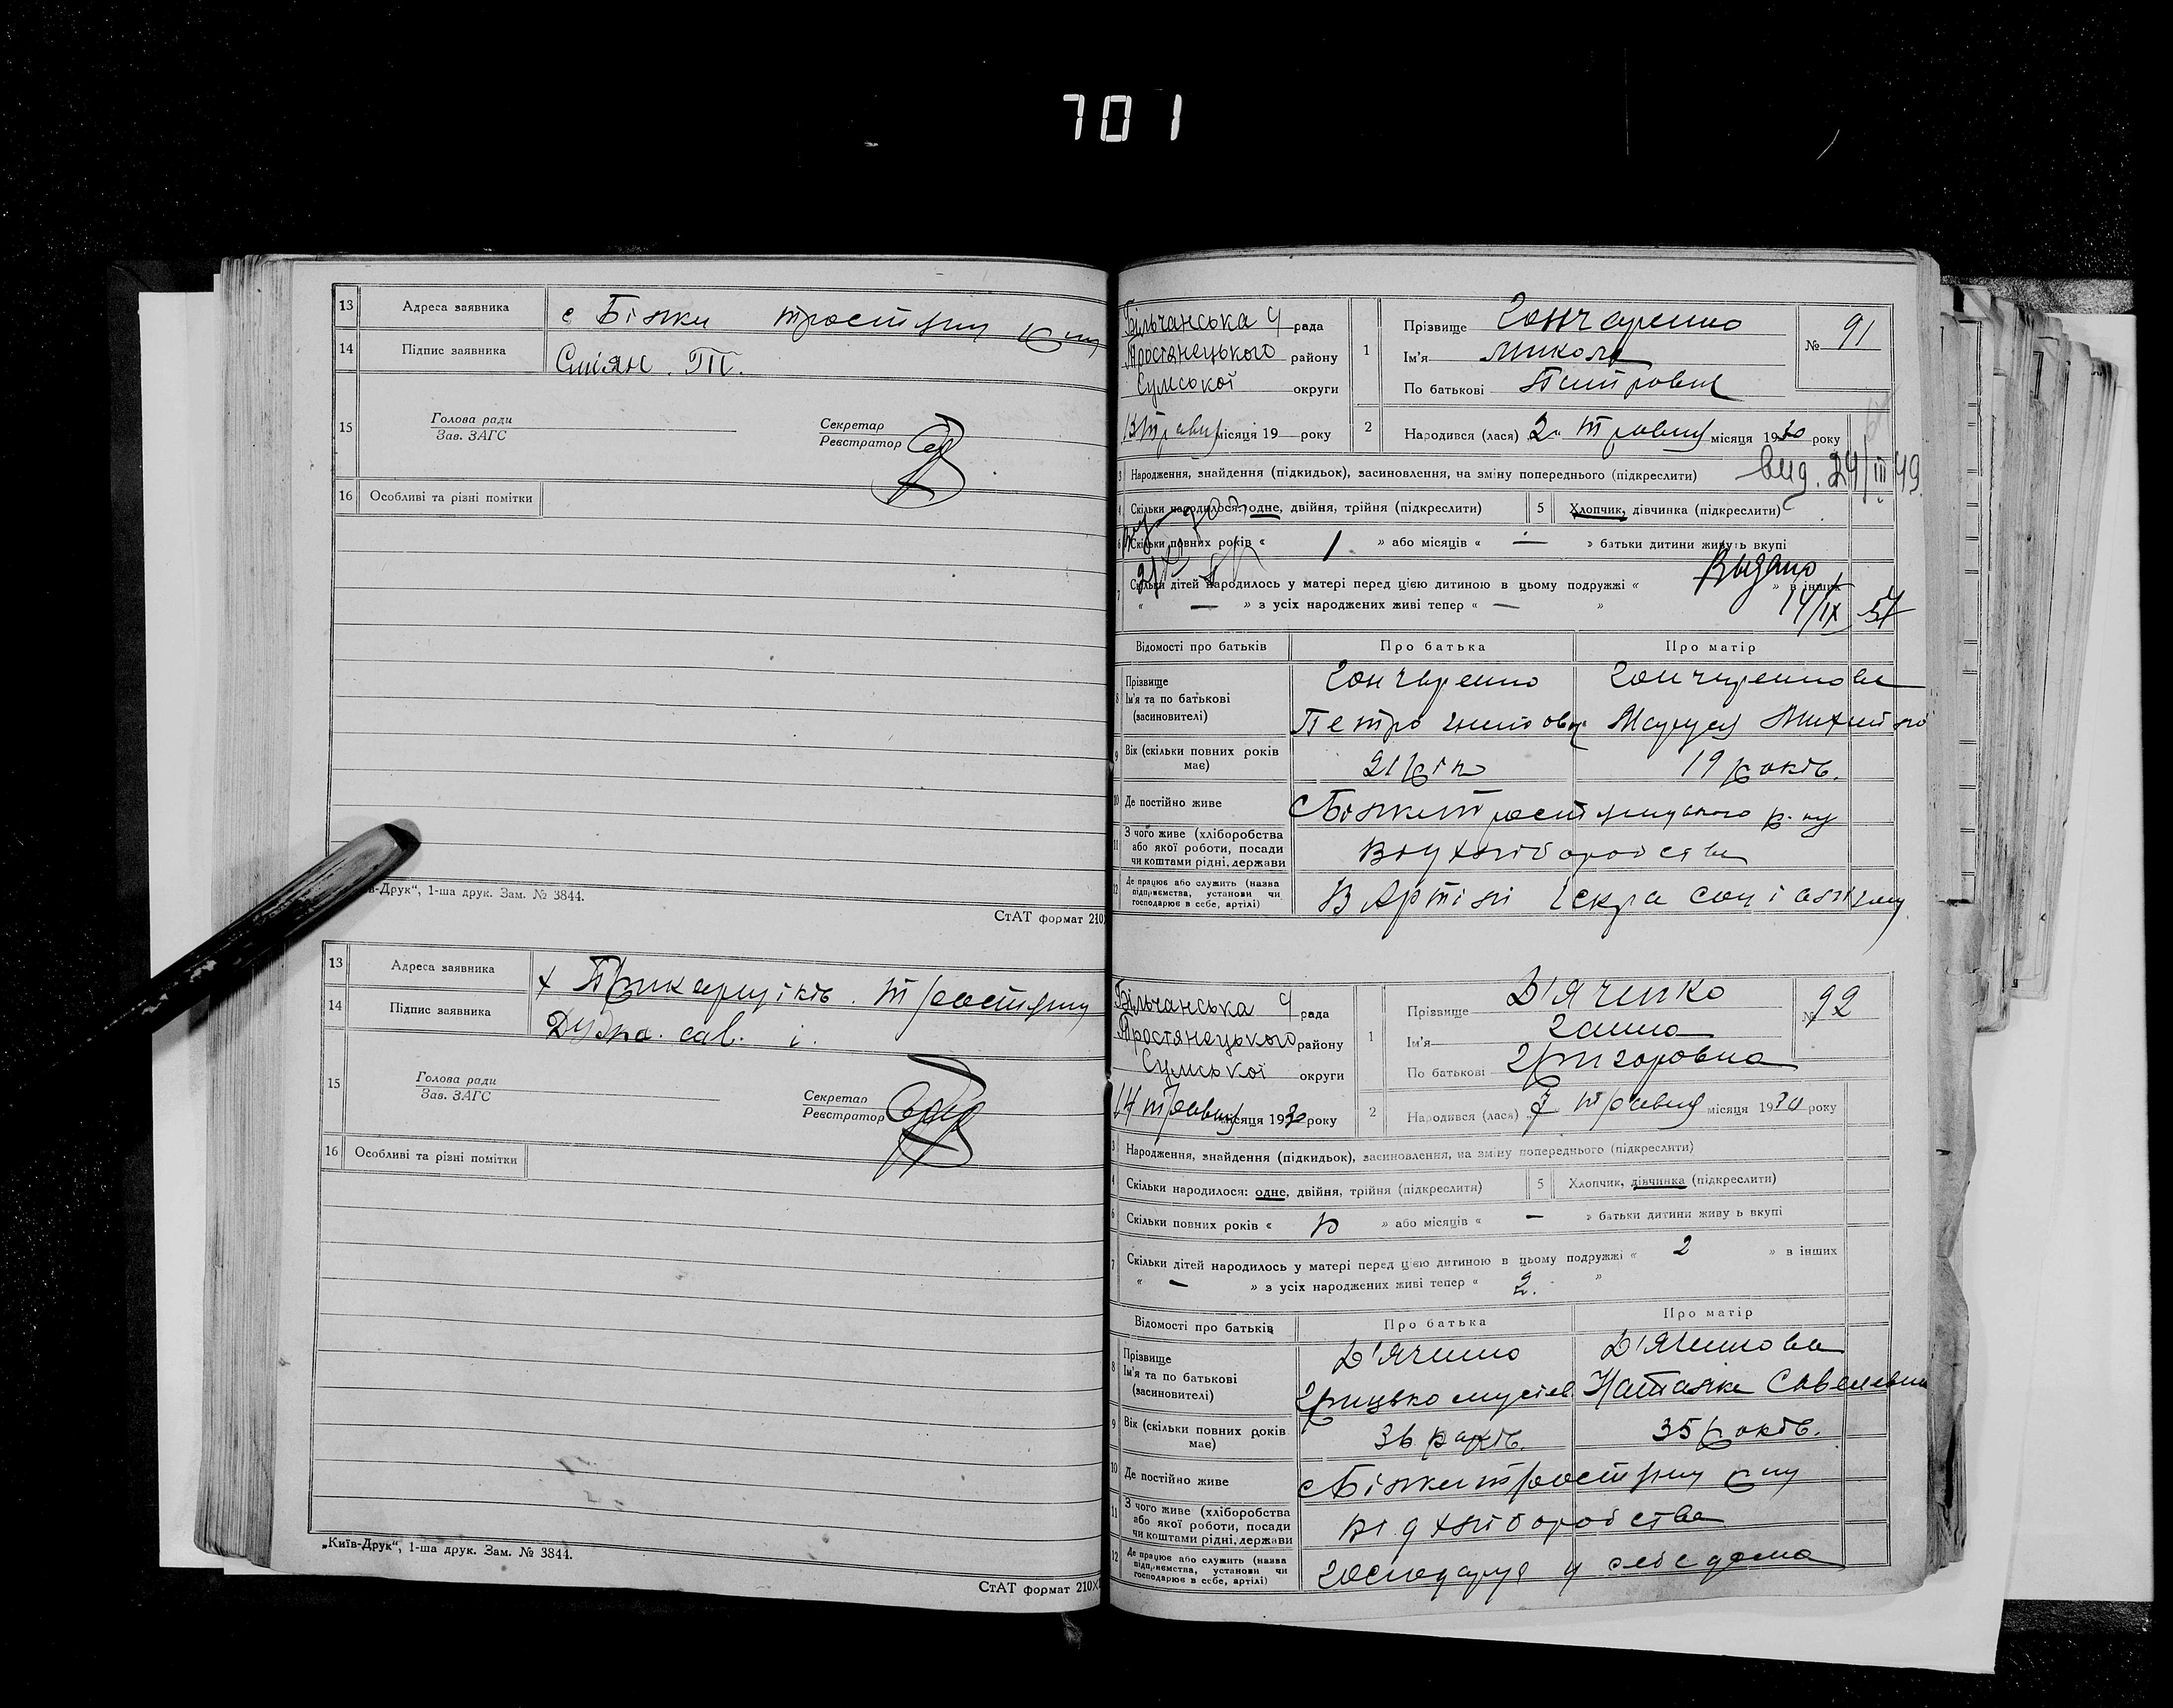 701
13 Адреса заявника с Білки
14 Підпис заявника
15 Голова ради
Зав. ЗАГС
Секретар
Реєстратор
16 Особливі та різні помітки
в-Друк“, 1-ша друк. Зам. № 3844.
СтАТ формат 210
13 Адреса заявника х
14 Підпис заявника
15 Голова ради
Зав. ЗАГС
Секретар
Реєстратор
16 Особливі та різні помітки
„Київ-Друк“, 1-ша друк. Зам. № 3844.
СтАТ формат 210×
Більчанська рада
Тростянецького району
Сумської округи
13 травня місяця 19 року
1 Прізвище Гончаренко
Ім'я Микола
По батькові Петрович
№ 91
2 Народився (лася) 2 травня місяця 1930 року
3 Народження, знайдення (підкидьок), засиновлення, на зміну попереднього (підкреслити)
вид. 24/III 49
4 Скільки народилося: одне, двійня, трійня (підкреслити) 5 Хлопчик, дівчинка (підкреслити)
6 Скільки повних років « 1 » або місяців « — » батьки дитини живуть вкупі
7 Скільки дітей народилось у матері перед цією дитиною в цьому подружжі « » в інших
« — » з усіх народжених живі тепер « — »
Выдано
14/IX 57
Відомості про батьків Про батька Про матір
8 Прізвище Гончаренко Гончаренкова
Ім'я та по батькові Петро
(засиновителі)
9 Вік (скільки повних років має) 21 рік 19 років.
10 Де постійно живе с Білки Тростянецького р-ну
11 З чого живе (хліборобства або якої роботи, посади чи коштами рідні, держави від хліборобства
12 Де працює або служить (назва підприємства, установи чи господарює в себе, артілі) В Артілі Іскра соціалізму
Більчанська рада
Тростянецького району
Сумської округи
14 травня місяця 1930 року
1 Прізвище Д'яченко
Ім'я Ганна
По батькові Григоровна
№ 92
2 Народився (лася) 7 травня місяця 1930 року
3 Народження, знайдення (підкидьок), засиновлення, на зміну попереднього (підкреслити)
4 Скільки народилося: одне, двійня, трійня (підкреслити) 5 Хлопчик, дівчинка (підкреслити)
6 Скільки повних років « » або місяців « — » батьки дитини живу ь вкупі
7 Скільки дітей народилось у матері перед цією дитиною в цьому подружжі « 2 » в інших
« — » з усіх народжених живі тепер « 2. »
Відомості про батьків Про батька Про матір
8 Прізвище Д'яченко Д'яченкова
Ім'я та по батькові Грицько мусієв. Наталка Савелевна
(засиновителі)
9 Вік (скільки повних років має) 36 років. 35 років.
10 Де постійно живе с Білки Тростянец р ну
11 З чого живе (хліборобства або якої роботи, посади чи коштами рідні, держави від хліборобства
12 Де працює або служить (назва підприємства, установи чи господарює в себе, артілі) господарує у себе дома